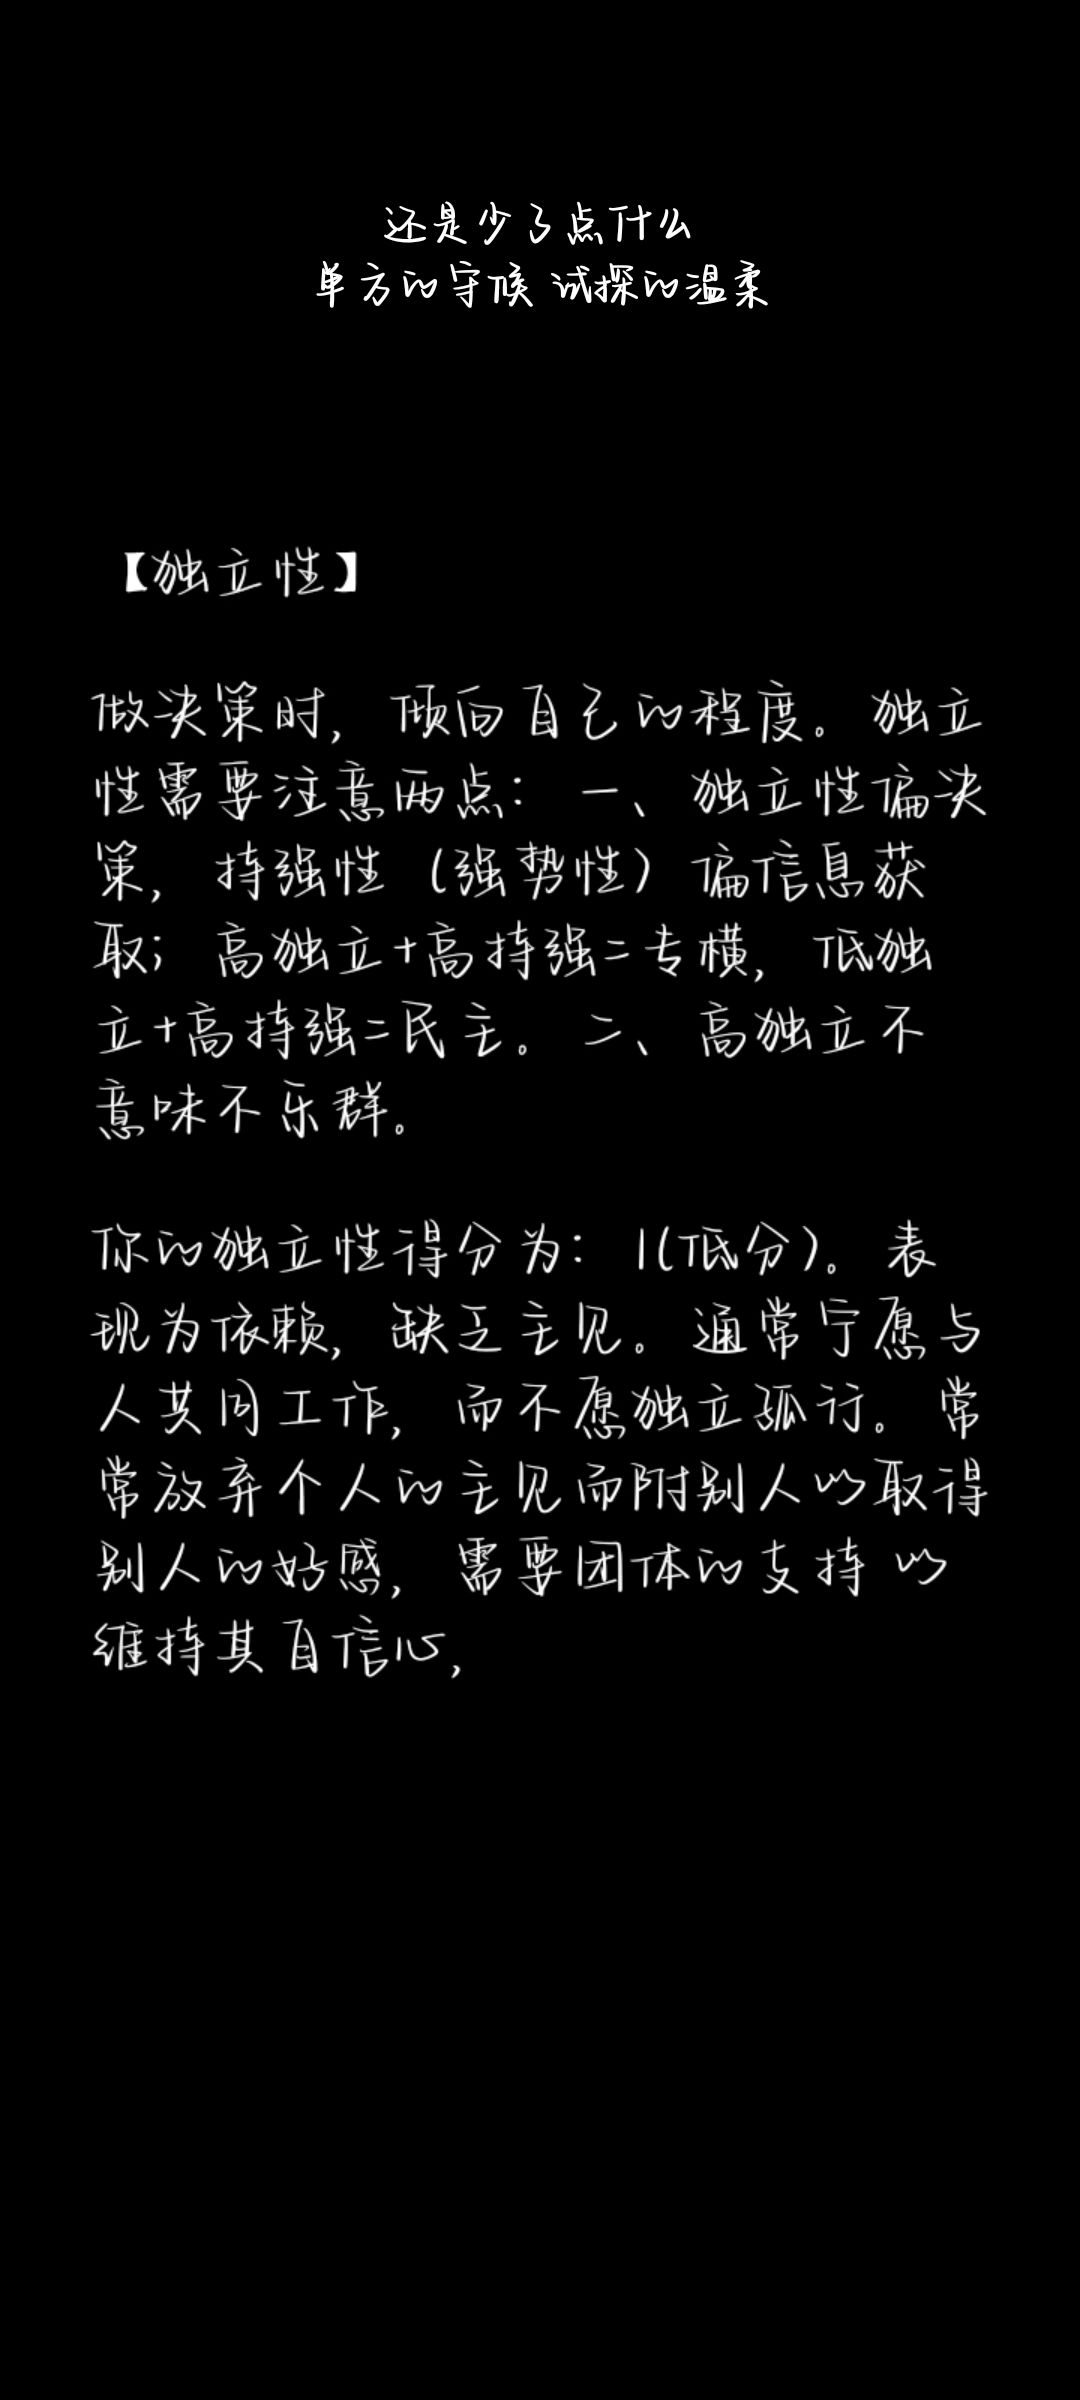 还是少了点什么
单方的守候 试探的温柔
【独立性】
做决策时，倾向自己的程度。独立
性需要注意两点：一、独立性偏决
策，持强性（强势性）偏信息获
取；高独立+高持强=专横，低独
立+高持强=民主。二、高独立不
意味不乐群。
你的独立性得分为：1(低分)。表
现为依赖，缺乏主见。通常宁愿与
人共同工作，而不愿独立孤行。常
常放弃个人的主见而附别人以取得
别人的好感，需要团体的支持 以
维持其自信心，